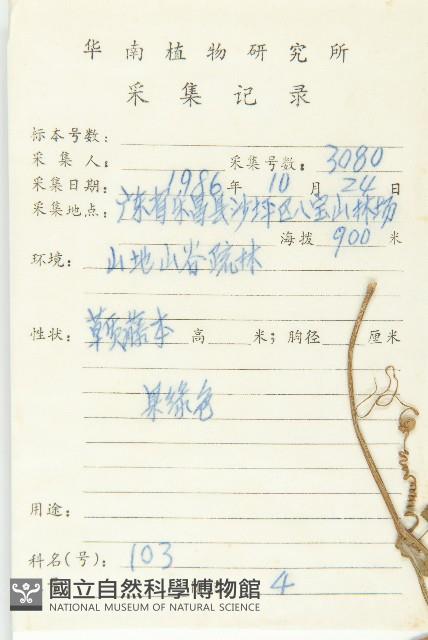 华南植物研究所
采集记录
标本号数：
采集人： 采集号数：3080
采集日期：1986年10月24日
采集地点：广东省乐昌县沙坪区八宝山林场
海拨900米
环境：山地山谷疏林
性状：草质藤本 高 米；胸径 厘米
果緑色
用途：
科名(号)：103
4
國立自然科學博物館
NATIONAL MUSEUM OF NATURAL SCIENCE